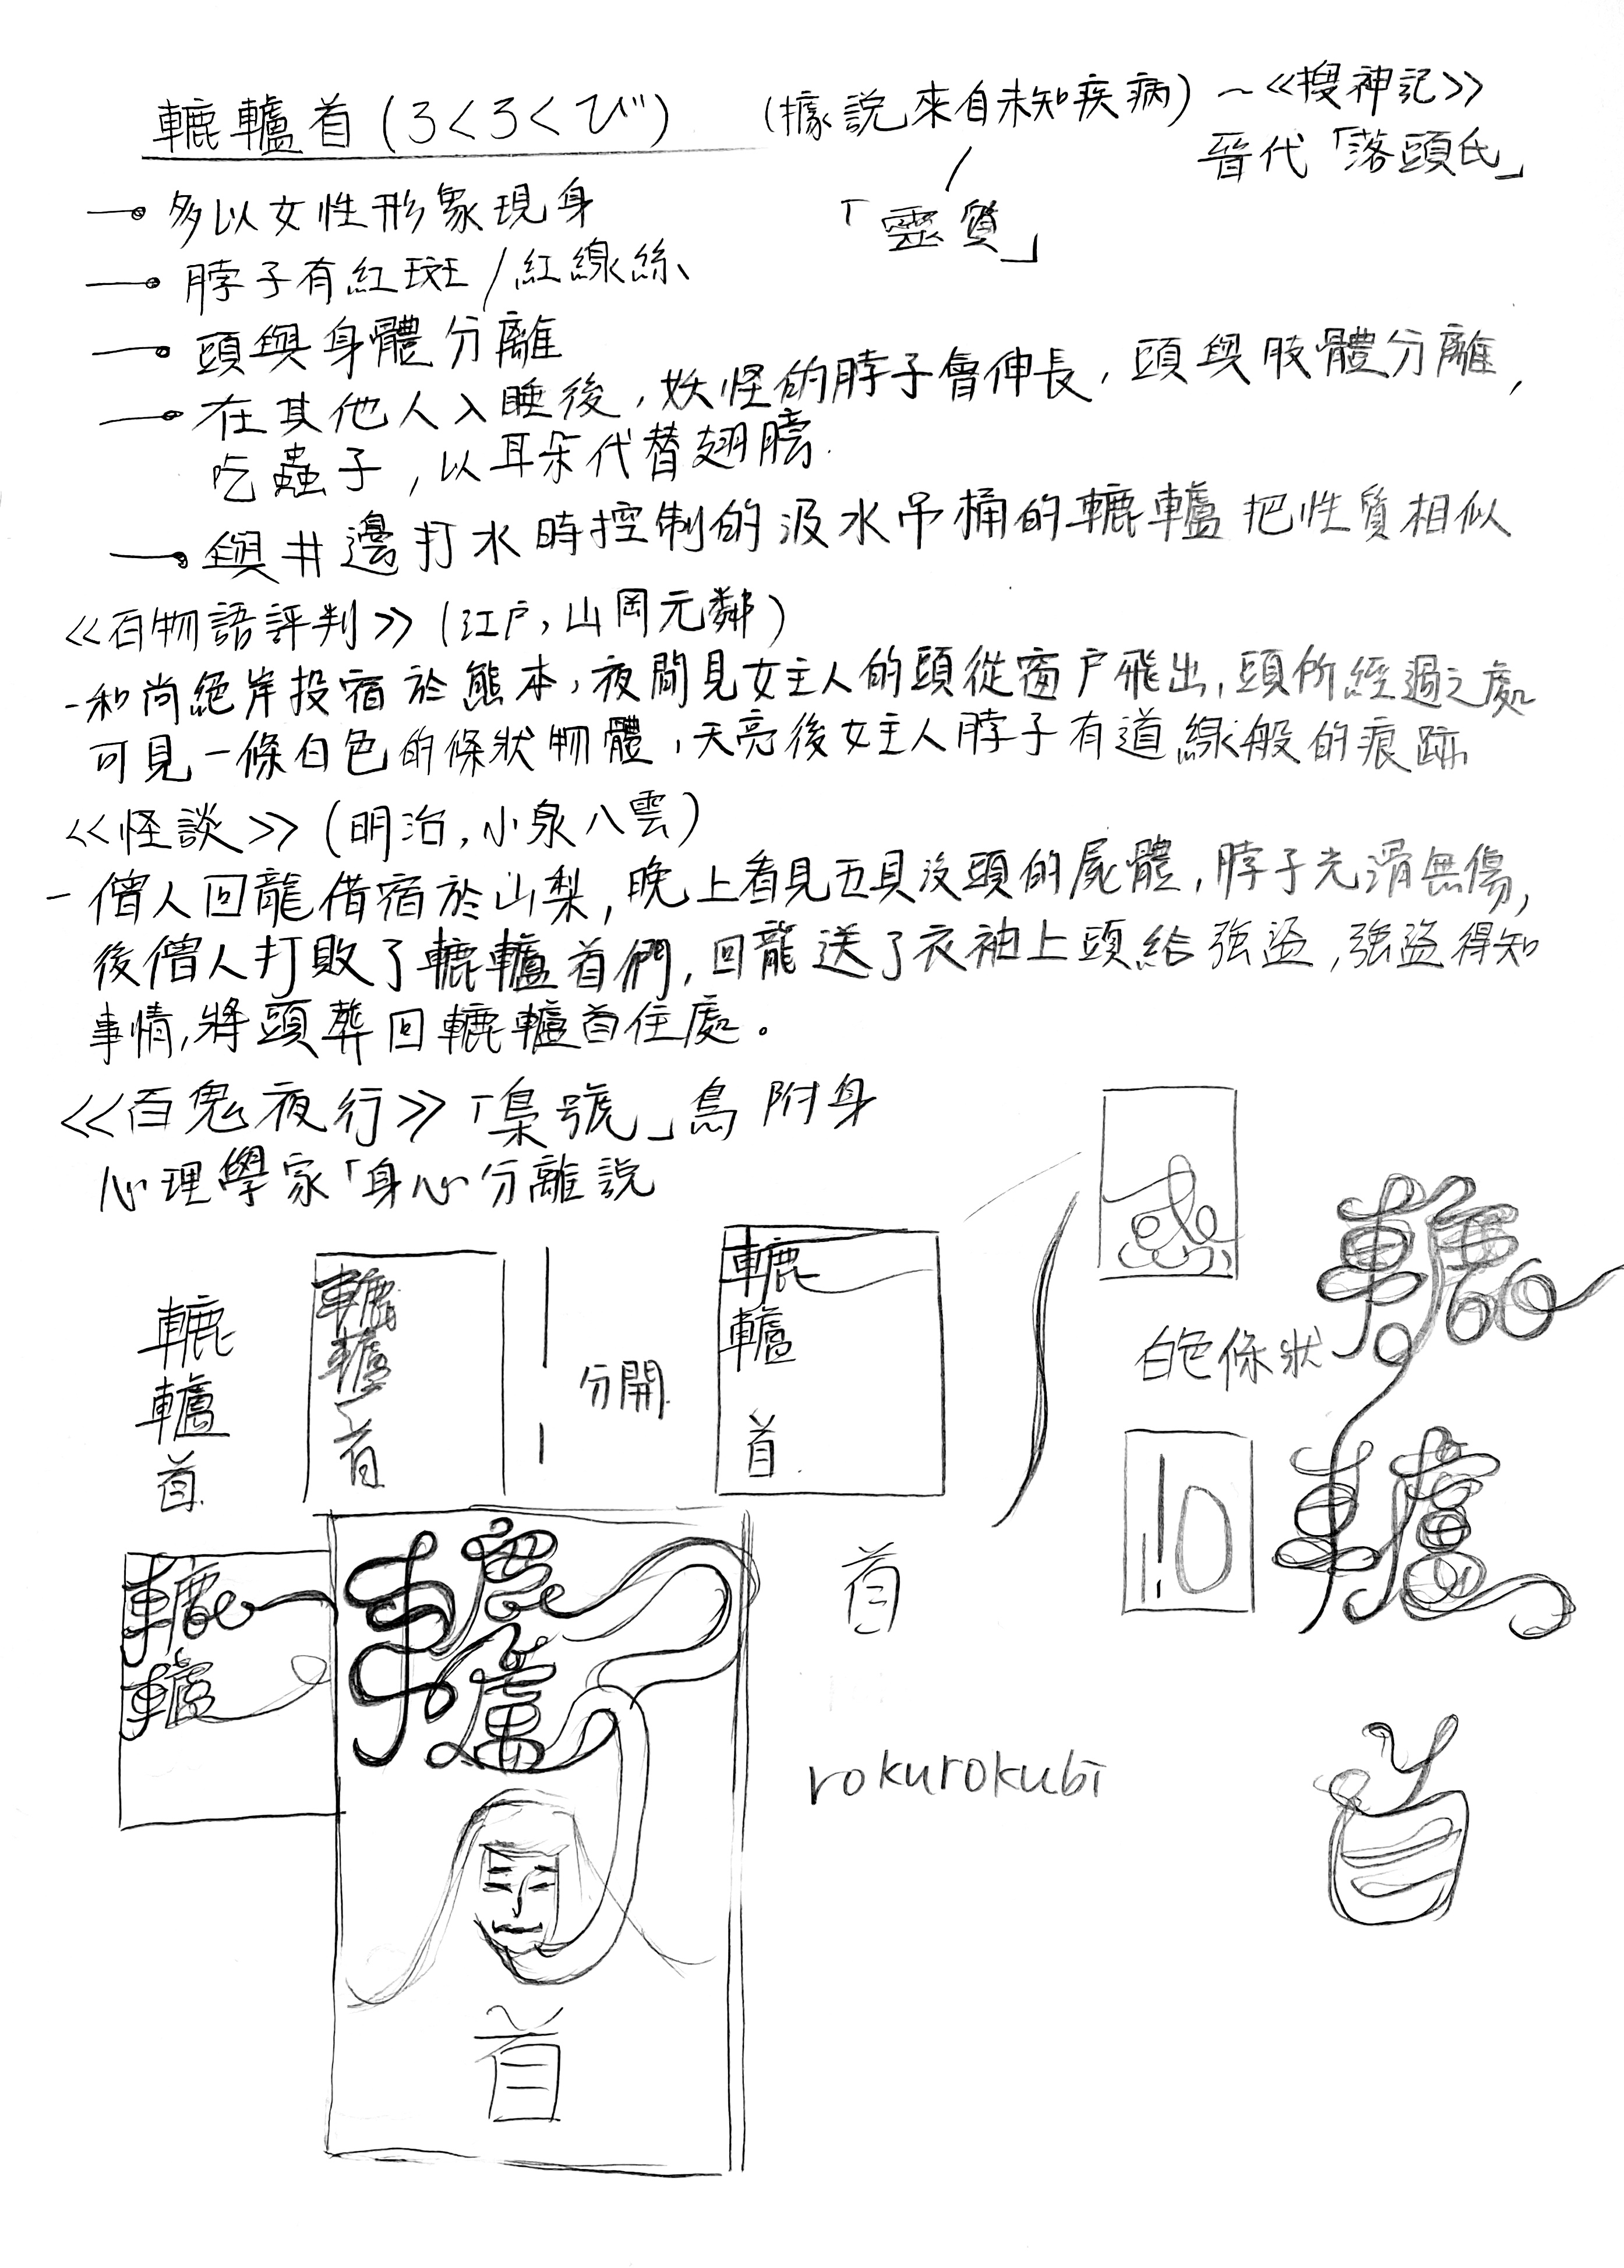 轆轤首(ろくろくび) (據說來自未知疾病)~《搜神記》
晉代「落頭氏」
「靈質」
多以女性形象現身
脖子有紅斑/紅線絲、
頭與身體分離
在其他人入睡後,妖怪的脖子會伸長,頭與肢體分離,
吃蟲子,以耳朵代替翅膀.
與井邊打水時控制的汲水吊桶的轆轤把性質相似
《百物語評判》(江戶,山岡元鄰)
-和尚絕岸投宿於熊本,夜間見女主人的頭從窗戶飛出,頭所經過之處
可見一條白色的條狀物體,天亮後女主人脖子有道線般的痕跡
《怪談》(明治,小泉八雲)
-僧人回龍借宿於山梨,晚上看見五具沒頭的屍體,脖子光滑無傷,
後僧人打敗了轆轤首們,回龍送了衣袖上頭給強盜,強盜得知
事情,將頭葬回轆轤首住處。
《百鬼夜行》「梟號」鳥附身
心理學家「身心分離說
轆
轤
首
轆
轤
首
分開
轆
轤
首
惑
轆
白色條狀
轤
轆
轤
轆
轤
首
首
rokurokubi
首